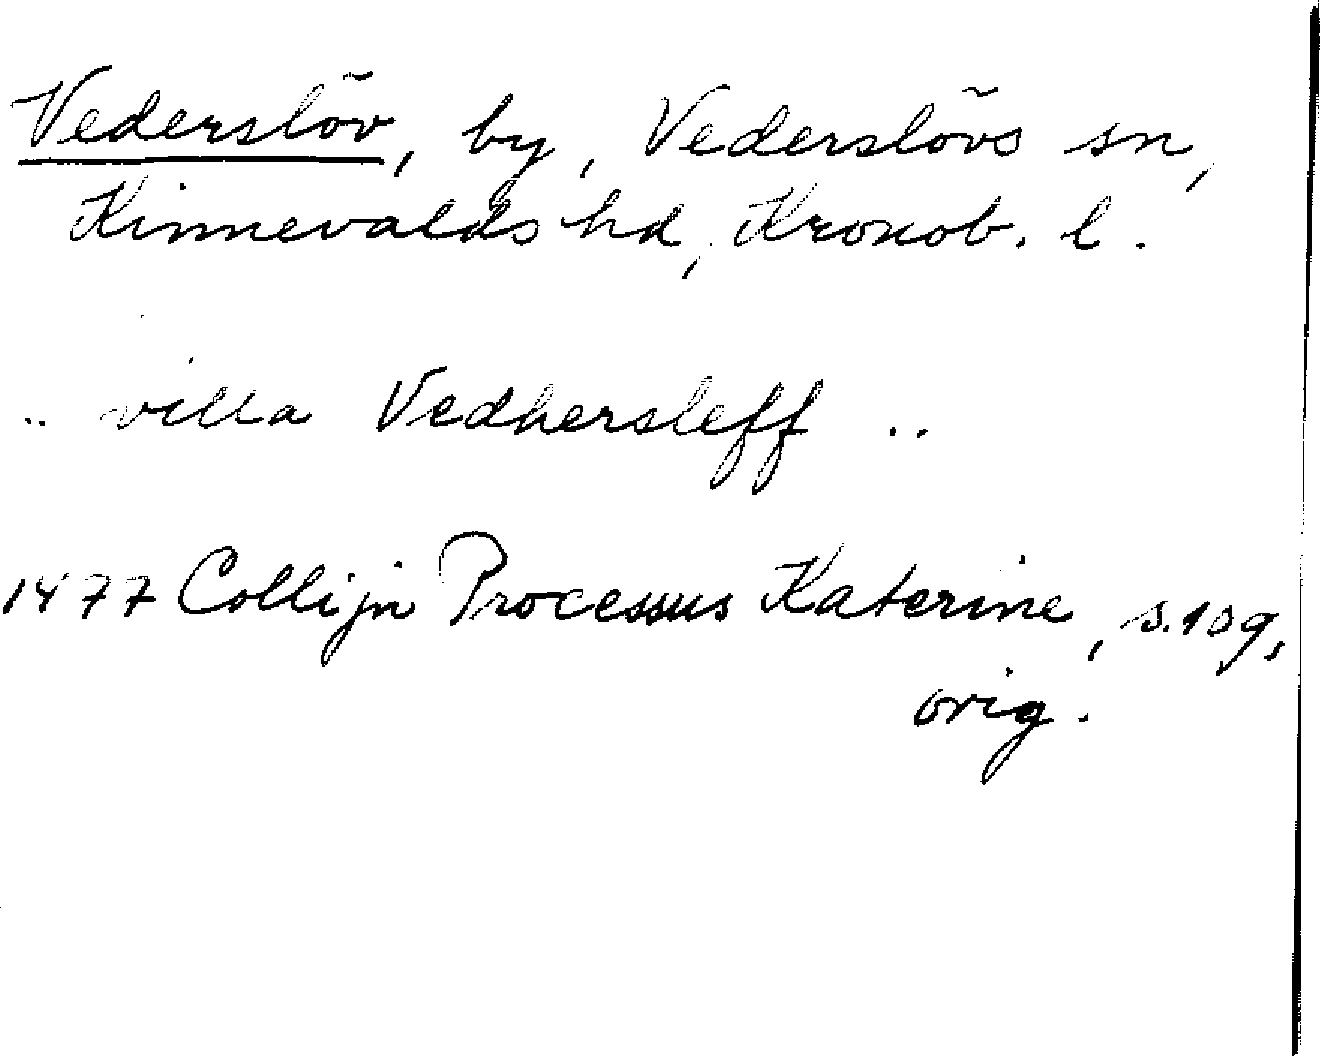 Vederslöv, by, Vederslövs sn,
Kinnevalds hd, Kronob. l.
.. villa Vedhersleff ..
1477 Collijn Processus Katerine, s. 109,
orig.